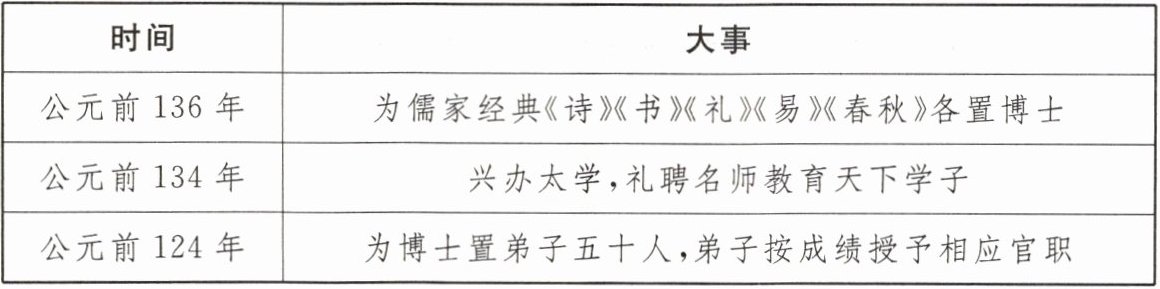 时间 大事
公元前 136 年 为儒家经典《诗》《书》《礼》《易》《春秋》各置博士
公元前 134 年 兴办太学,礼聘名师教育天下学子
公元前 124 年 为博士置弟子五十人,弟子按成绩授予相应官职